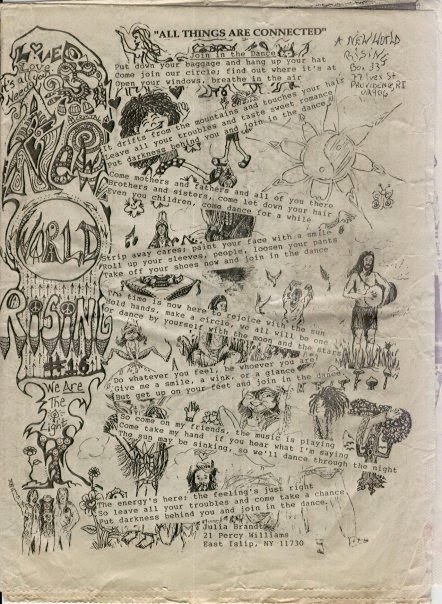 "ALL THINGS ARE CONNECTED"
A NEW WORLD
RISING
Box 33
77 Ives St
PROVIDENCE, RI
02906
LOVE
NEW
WORLD
RISING
#16
We Are
The
Light
Join in the Dance
Put down your baggage and hang up your hat
Come join our circle; find out where it's at
Open your windows, breathe in the air
It drifts from the mountains and touches your hair
Leave all your troubles and taste sweet romance
Put darkness behind you and join in the dance
Come mothers and fathers and all of you there
Brothers and sisters, come let down your hair
Even you children, come dance for a while
Strip away cares; paint your face with a smile
Roll up your sleeves, people, loosen your pants
Take off your shoes now and join in the dance
time is now here to rejoice with the sun
Hold hands, make a circle, we all will be one
Or dance by yourself with the moon and the stars
Do whatever you feel, be whoever you are
Give me a smile, a wink, or a glance
But get up on your feet and join in the dance
So come on my friends, the music is playing
Come take my hand if you hear what I'm saying
The sun may be sinking, so we'll dance through the night
The energy's here; the feeling's just right
So leave all your troubles and come take a chance
Put darkness behind you and join in the dance.
Julia Brandt
21 Percy Williams
East Islip, NY 11730